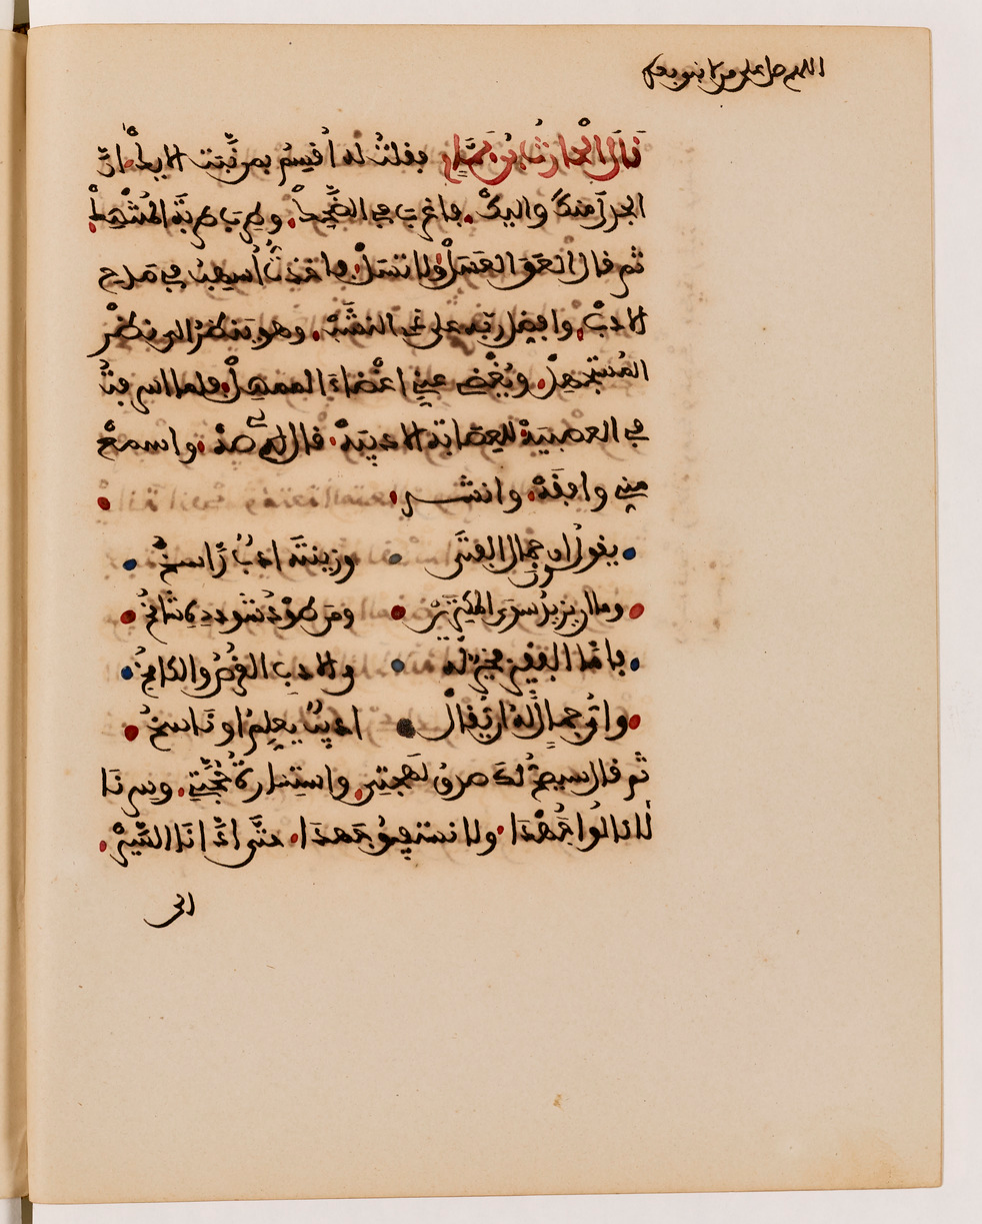 اللهم صل على مولانا محمد
قَالَ الْحَارثُ بْنُ هَمَّام فقلتُ له اُقْسِمُ بمن نَبَّتَ الايك انّ
الجدل منك واليك فاغرب في الضَّحِك وطرب طربَةَ المُنْهَمِكْ
ثم قال الْعَقِ العَسَلْ ولا تسَلْ فاخذتُ اُسهِبُ في مَدح
الادبْ وافضل ربّه على ذي النشَبْ وهو يَنظر الي نظَرْ
المُسْتجهِلْ ويُغْضي عنِي اغْضاءَ الممهِلْ فلما اسرفتُ
في العصبيَةْ للعِصَابَة الادبِيَّةْ قال لي صَهْ واسمعْ
مِنِي وافقَهْ وانشد
يقولُون جمالَ الفتَى وزينتَه ادبٌ رَّاسخُ
وما ان يزينُ سوَى المكثِرِينْ ومَن طَوْدُ سُودده شَامخُ
فامّا الفقير فخيرٌ لّه من الادبِ القُرْصُ والكامخُ
وايُّ جمالٍ لَّهُ ان يُّقالْ اديبٌ يعلِمُ او نَاسخُ
ثم قال سيضحُ لك صدقُ لهجتِي واستِنارةُ حُجَّتِي وسِرنَا
لا نالُوا جُهْدَا ولا نستفِيقُ جَهدَا حتَّى ادَّانَا السَّيْرْ
الى